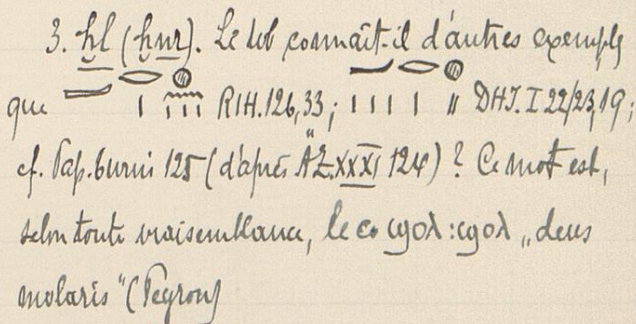 3. ḫl (ḫnr). Le Wb connaît-il d'autres exempls
que RIH.126,33; DHT. I 22/23,19;
cf. Pap. turin 125 (d'après ÄZ.XXXI 124)? Ce mot est,
selon toute vraisemblance, le co ϣⲟⲗ : ϣⲟⲗ „dens
molaris“ (Peyron)